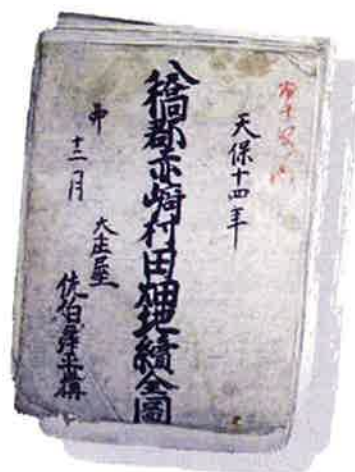 天保十四年
八橋郡赤崎村田畑地續全圖
十二月
大庄屋
佐伯